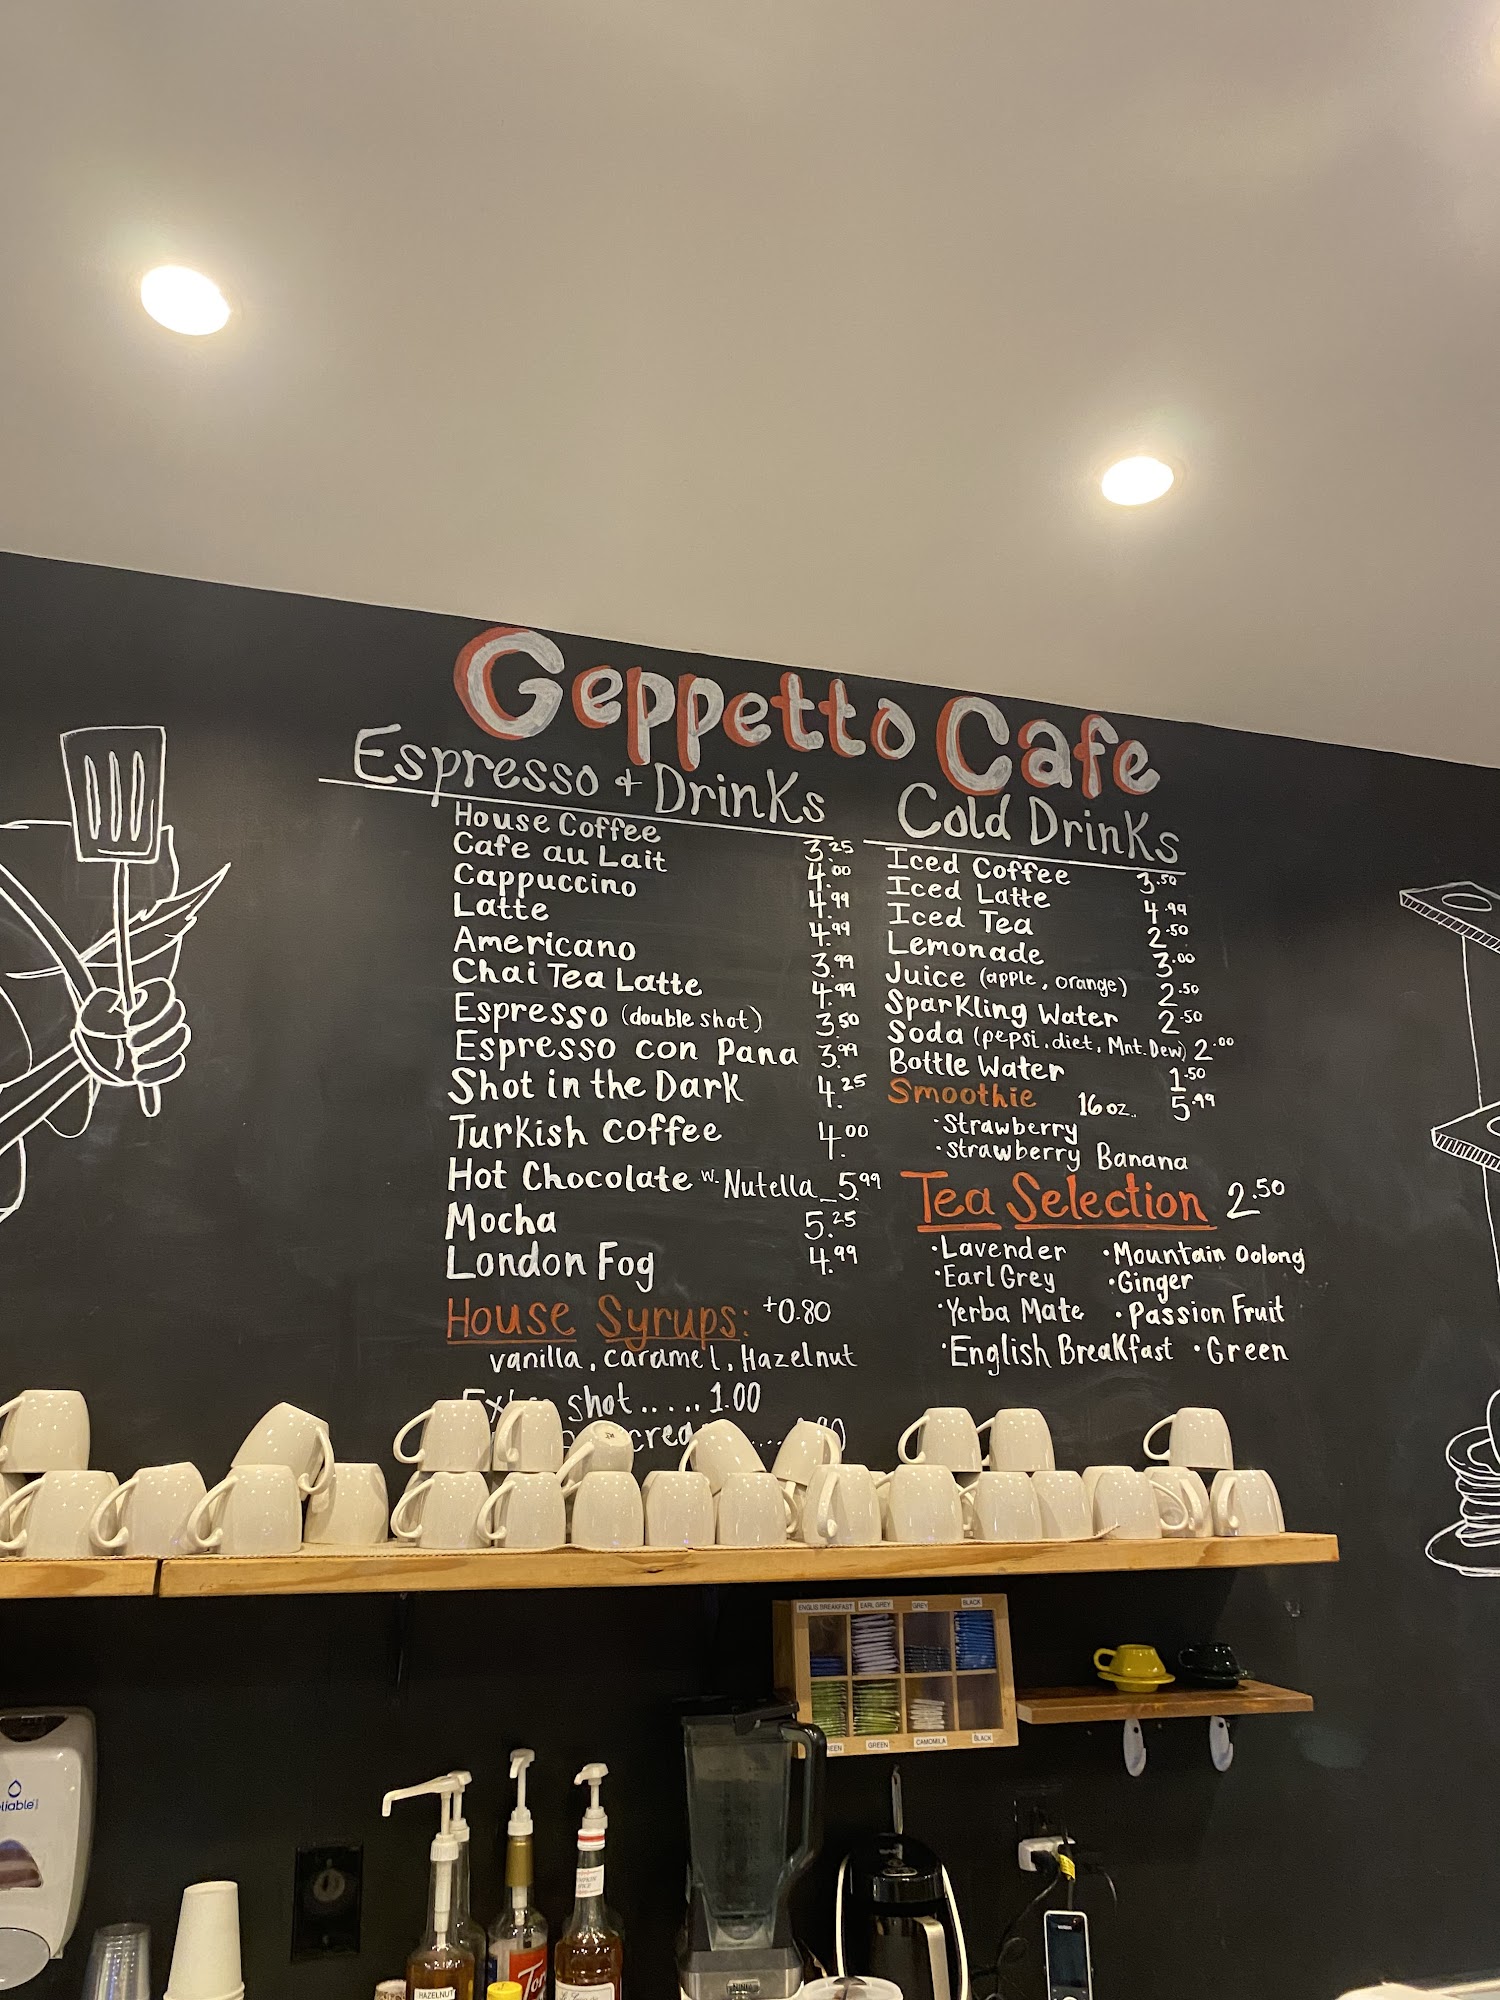 Geppetto Cafe
Espresso + Drinks
House Coffee 3.25
Cafe au Lait 4.00
Cappuccino 4.99
Latte 4.99
Americano 3.99
Chai Tea Latte 4.99
Espresso (double shot) 3.50
Espresso con Pana 3.99
Shot in the Dark 4.25
Turkish coffee 4.00
Hot Chocolate w. Nutella_5.99
Mocha 5.25
London Fog 4.99
House Syrups: +0.80
vanilla, caramel, Hazelnut
shot.....1.00
Cold Drinks
Iced Coffee 3.50
Iced Latte 4.99
Iced Tea 2.50
Lemonade 3.00
Juice (apple, orange) 2.50
Sparkling Water 2.50
Soda (pepsi, diet, Mnt. Dew) 2.00
Bottle Water 1.50
Smoothie 16oz.. 5.99
·Strawberry
·Strawberry Banana
Tea Selection 2.50
·Lavender ·Mountain Oolong
·Earl Grey ·Ginger
·Yerba Mate ·Passion Fruit
·English Breakfast ·Green
ENGLIS BREAKFAST EARL GREY GREY BLACK
GREEN CAMOMILA BLACK
HAZELNUT